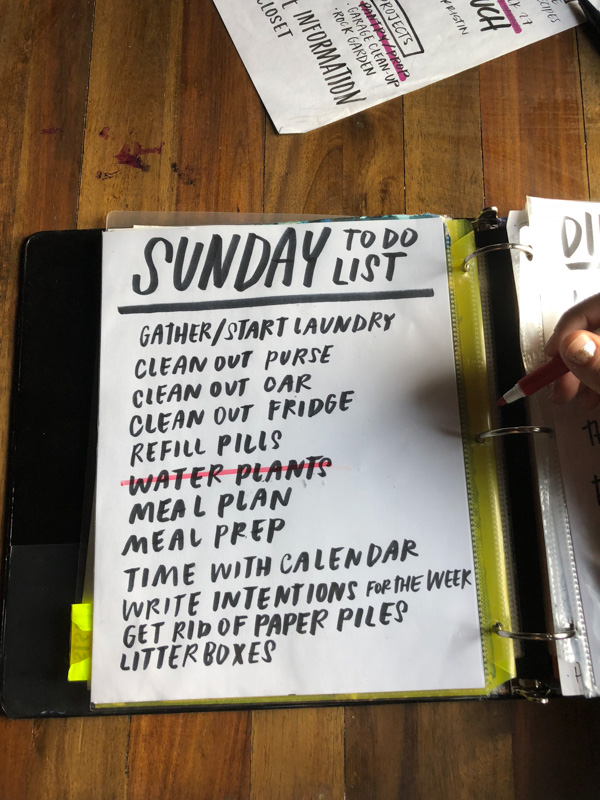 PROJECTS
PANTRY/PROB
• GARAGE CLEAN-UP
• ROCK GARDEN
INFORMATION
CLOSET
KRISTIN
SUNDAY TO DO
LIST
GATHER/START LAUNDRY
CLEAN OUT PURSE
CLEAN OUT CAR
CLEAN OUT FRIDGE
REFILL PILLS
WATER PLANTS
MEAL PLAN
MEAL PREP
TIME WITH CALENDAR
WRITE INTENTIONS FOR THE WEEK
GET RID OF PAPER PILES
LITTERBOXES